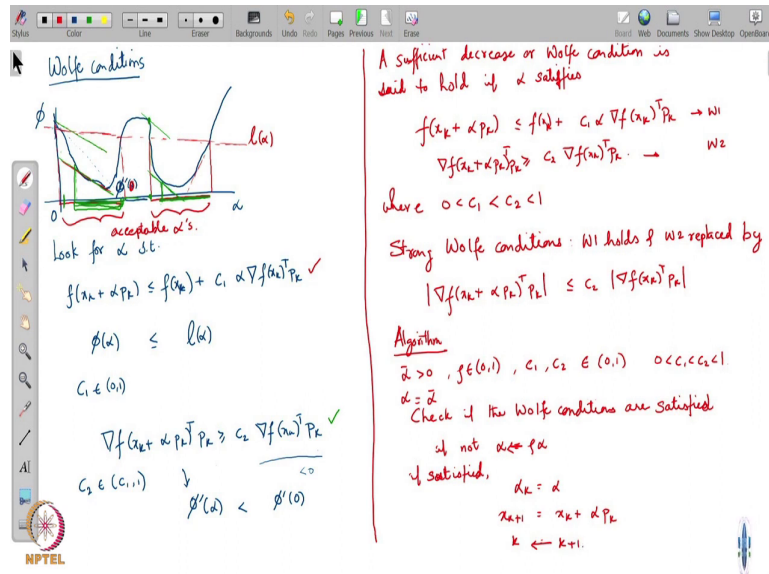 Stylus Color Line Eraser Backgrounds Undo Redo Pages Previous Next Erase Board Web Documents Show Desktop OpenBoard
Wolfe conditions
ϕ
l(α)
ϕ'(0)
0
α
acceptable α's.
Look for α s.t.
f(xₖ + αpₖ) ≤ f(xₖ) + c₁ α∇f(xₖ)ᵀpₖ ✓
ϕ(α) ≤ l(α)
c₁ ∈ (0,1)
∇f(xₖ + αpₖ)ᵀpₖ ≥ c₂ ∇f(xₖ)ᵀpₖ ✓
<0
c₂ ∈ (c₁,1) ↓
ϕ'(α) < ϕ'(0)
A sufficient decrease or Wolfe condition is
said to hold if α satisfies
f(xₖ + αpₖ) ≤ f(xₖ) + c₁ α ∇f(xₖ)ᵀpₖ → W1
∇f(xₖ + αpₖ)ᵀpₖ ≥ c₂ ∇f(xₖ)ᵀpₖ. → W2
where 0<c₁<c₂<1
Strong Wolfe conditions: W1 holds & W2 replaced by
|∇f(xₖ + αpₖ)ᵀpₖ| ≤ c₂ |∇f(xₖ)ᵀpₖ|
Algorithm
ᾱ >0, ρ∈(0,1), c₁, c₂ ∈ (0,1) 0<c₁<c₂<1
α = ᾱ
Check if the Wolfe conditions are satisfied
if not α← ρα
if satisfied,
αₖ = α
xₖ₊₁ = xₖ + αpₖ
k ← k+1.
AI
NPTEL